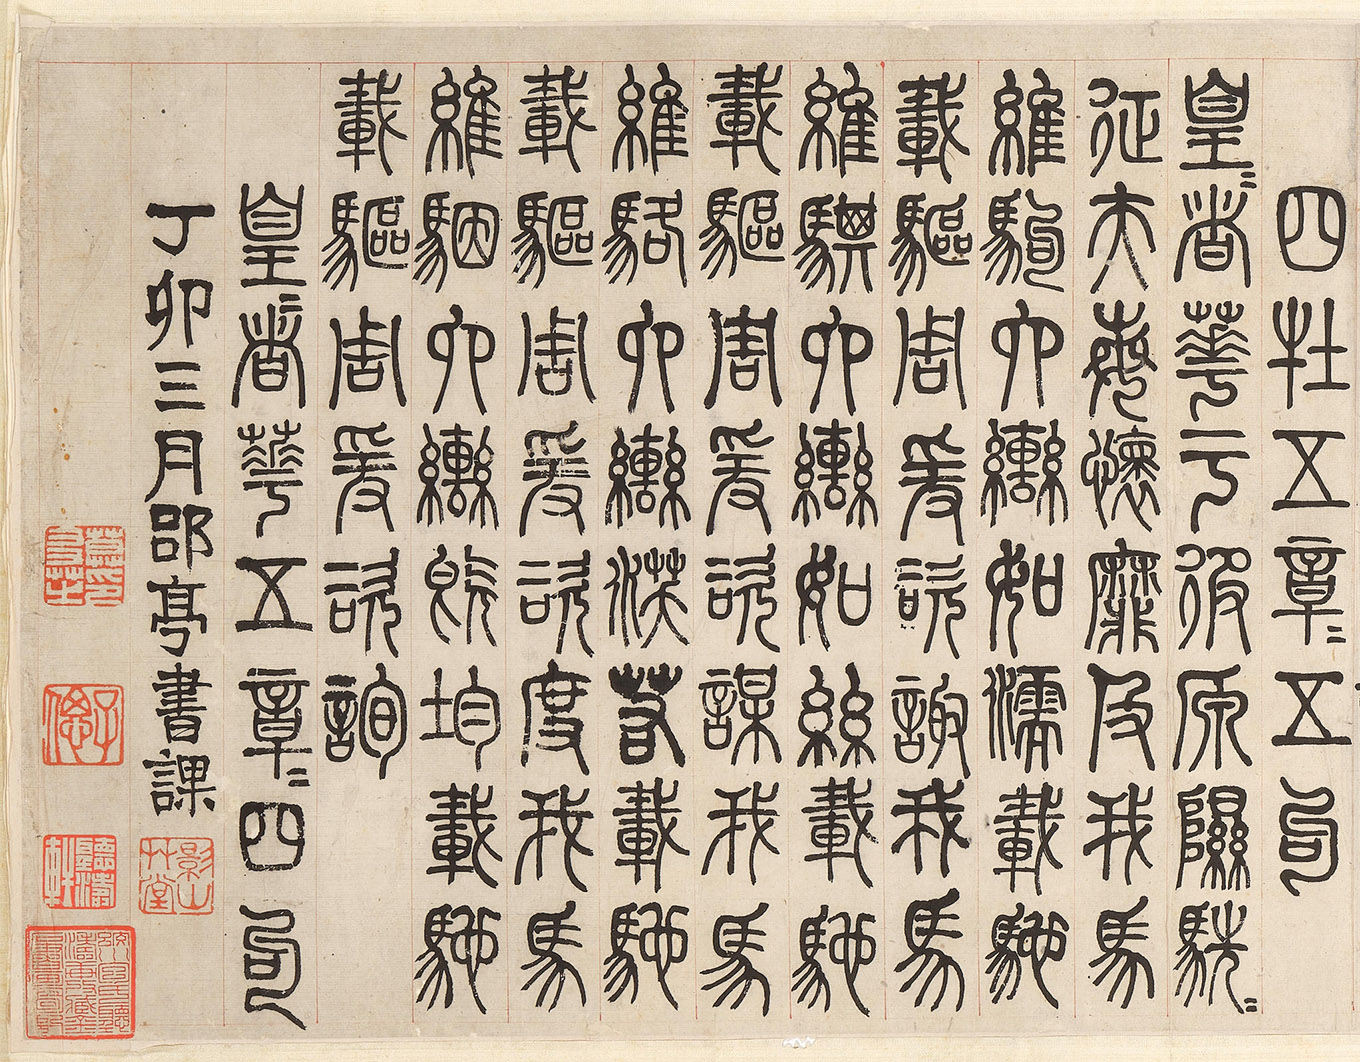 四牡五章〻五句
皇〻者華于彼原隰駪〻
征夫每懷靡及我馬
維駒六轡如濡載馳
載驅周爰咨諏我馬
維騏六轡如絲載馳
載驅周爰咨謀我馬
維駱六轡沃若載馳
載驅周爰咨度我馬
維駰六轡既均載馳
載驅周爰咨詢
皇〻者華五章〻四句
丁卯三月郘亭書課
影山艸堂
莫印友芝
子偲